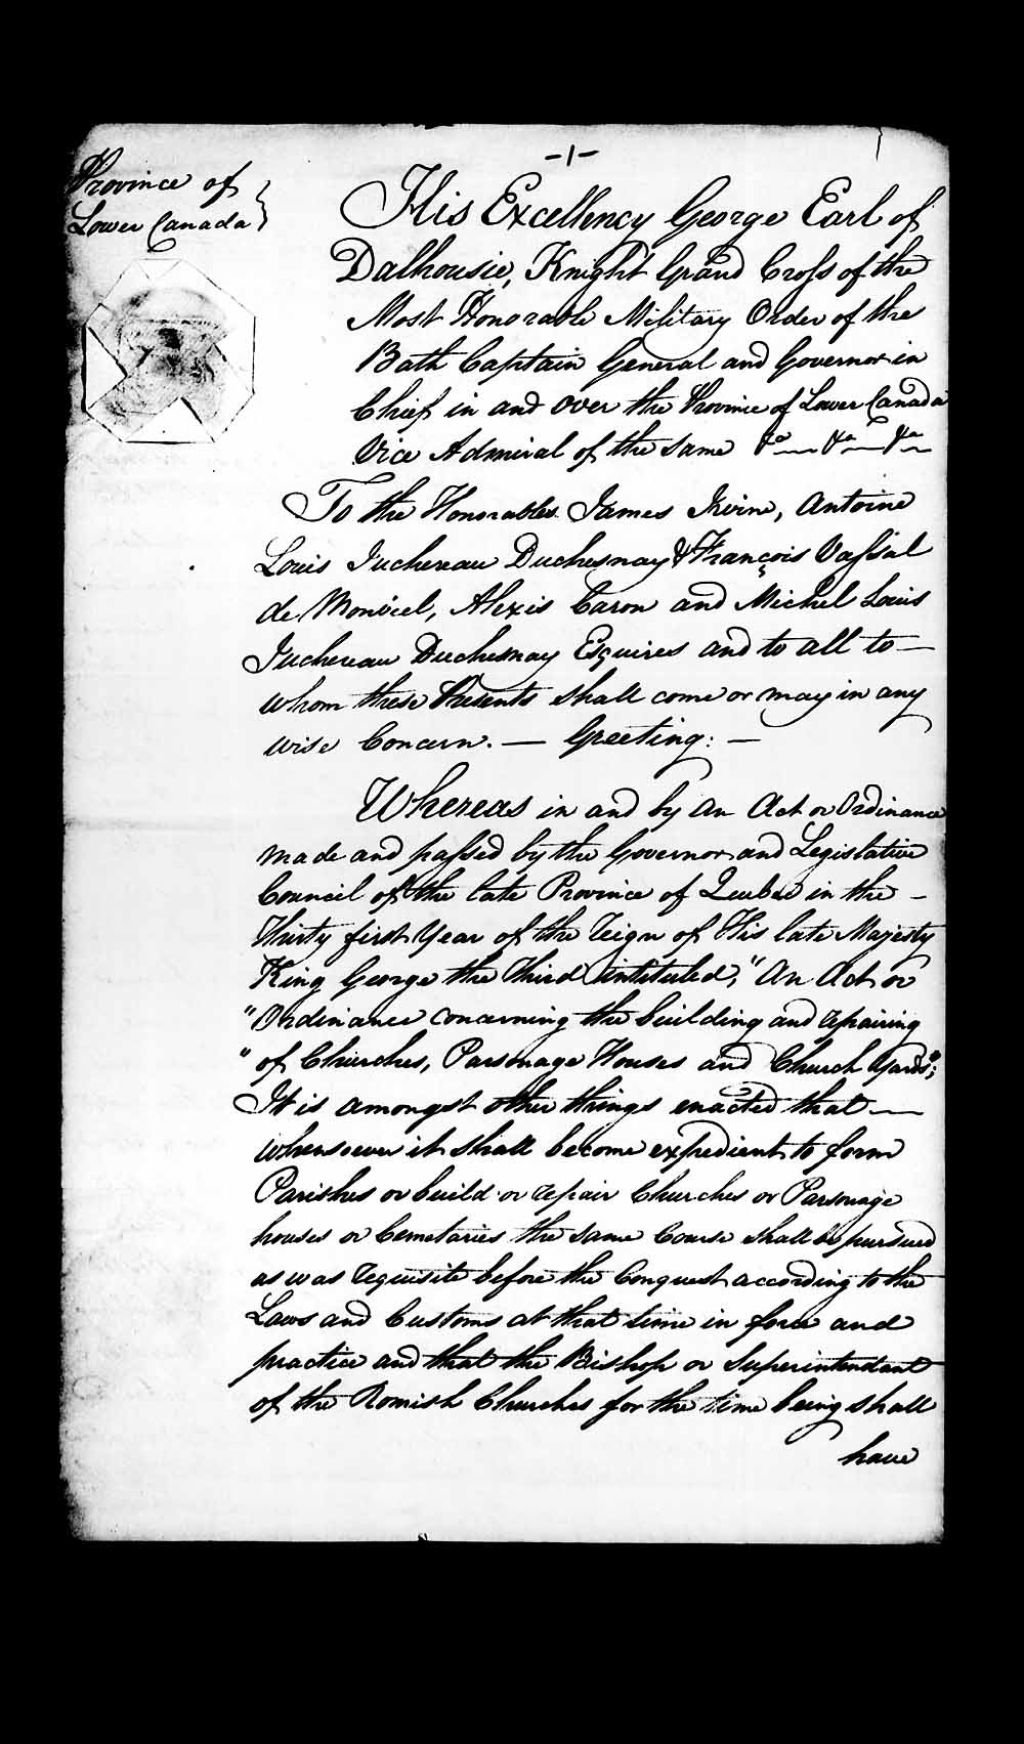 -1-
Province of
Lower Canada
His Excellency George Earl of
Dalhousie, Knight Grand Cross of the
Most Honorable Military Order of the
Bath Captain General and Governor in
Chief in and over the Province of Lower Canada
Vice Admiral of the same &a — &a — &a —
To the Honorables James Irvine, Antoine
Louis Juchereau Duchesnay & François Vassal
de Monviel, Alexis Caron and Michel Louis
Juchereau Duchesnay Esquires and to all to —
whom these Presents shall come or may in any
wise Concern. — Greeting: —
Whereas in and by an Act or Ordinance
made and passed by the Governor and Legislative
Council of the late Province of Quebec in the —
Thirty first Year of the Reign of His late Majesty
King George the Third intituled, "An Act or
"Ordinance concerning the building and repairing
"of Churches, Parsonage Houses and Church Yards";
It is amongst other things enacted that —
whensoever it shall become expedient to form
Parishes or build or repair Churches or Parsonage
houses or Cemetaries the same Course shall be pursued
as was requisite before the Conquest according to the
Laws and Customs at that time in force and
practice and that the Bishop or Superintendant
of the Romish Churches for the time being shall
have